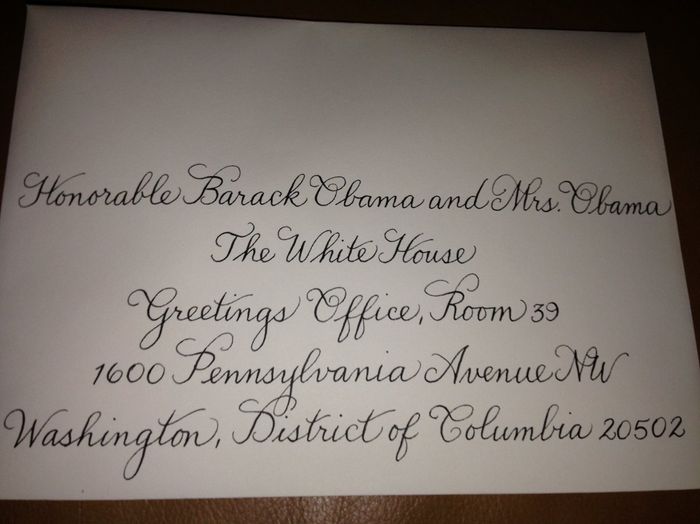 Honorable Barack Obama and Mrs. Obama
The White House
Greetings Office, Room 39
1600 Pennsylvania Avenue NW
Washington, District of Columbia 20502